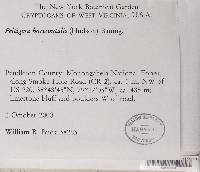 The New York Botanical Garden
CRYPTOGAMS OF WEST VIRGINIA, U.S.A.
Peltigera horizontalis (Hudson) Baumg.
Pendleton County. Monongahela National Forest.
Along Smoke Hole Road (CR 2), ca. mi. NW of
US 220, 38°48'45"N, ca. 485 m;
limestone bluff and boulders W of road.
2 October 2003
William R. Buck